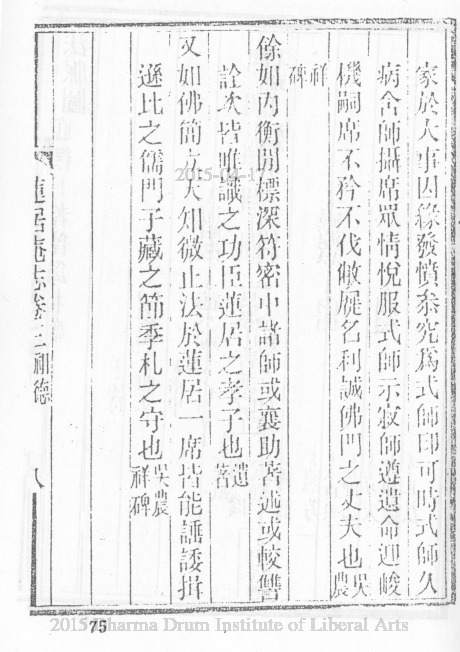 家於大事因緣發憤叅究爲式師印可時式師久
病舍師攝席眾情悅服式師示寂師遵遺命迎峻
機嗣席不矜不伐敝屣名利誠佛門之丈夫也吳農
祥碑
餘如內衡用標深符密中諸師或襄助著述或較讐
詮次皆唯識之功臣蓮居之孝子也遺著
又如佛簡方大知微止法於蓮居一席皆能諈諉揖
遜比之儒門子藏之節季札之守也吳農祥碑
蓮居庵志卷三 祖德
八
75
2015-09-17
2015 Dharma Drum Institute of Liberal Arts